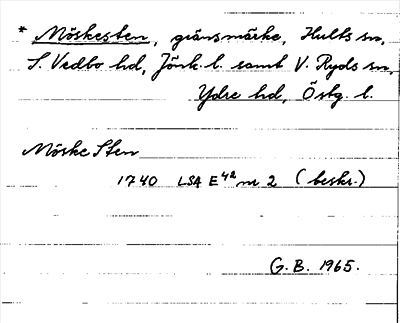 * Möskesten, gränsmärke, Hults sn,
S. Vedbo hd, Jönk. l. samt V. Ryds sn,
Ydre hd, Östg. l.
Möske Sten
1740 LSA E4a nr 2 (beskr.)
G. B. 1965.